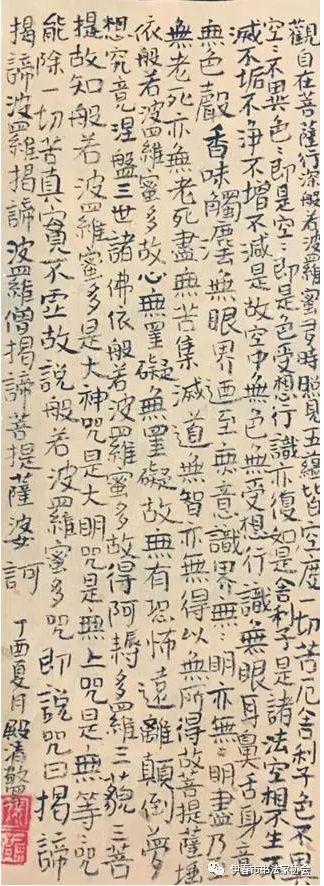 觀自在菩薩行深般若波羅蜜多時照見五蘊皆空度一切苦厄舍利子色不異
空空不異色色即是空空即是色受想行識亦復如是舍利子是諸法空相不生
滅不垢不淨不增不減是故空中無色無受想行識無眼耳鼻舌身意
無色聲香味觸法無眼界迺至無意識界無無明亦無無明盡乃至
無老死亦無老死盡無苦集滅道無智亦無得以無所得故菩提薩埵
依般若波羅維蜜多故心無罣礙無罣礙故無有恐怖遠離顛倒夢
想究竟涅盤三世諸佛依般若波羅維蜜多故得阿耨多羅維三藐三菩
提故知般若波羅維蜜多是大神咒是大明咒是無上咒是無等咒
能除一切苦真實不虛故說般若波羅維蜜多咒即說咒曰揭諦
揭諦波羅維揭諦波羅維僧揭諦菩提薩婆訶
丁酉夏月殿清敬
伊春市书法家协会